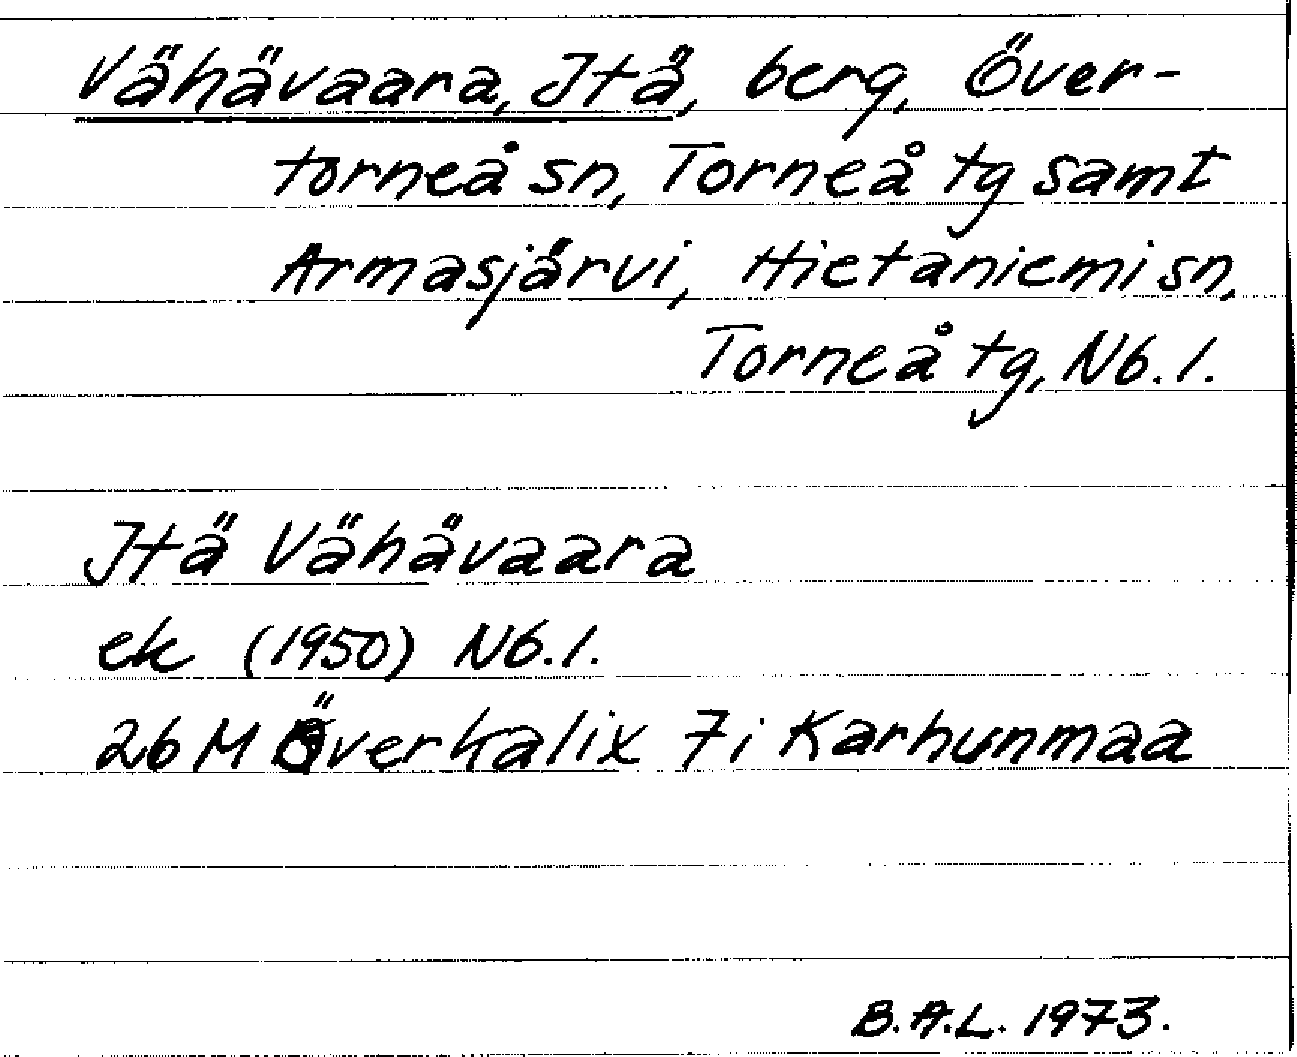 Vähävaara, Itä, berg, Över-
torneå sn, Torneå tg samt
Armasjärvi, Hietaniemi sn,
Torneå tg, Nb. l.
Itä Vähävaara
ek (1950) Nb. l.
26 M Överkalix 7i Karhunmaa
B.A.L. 1973.